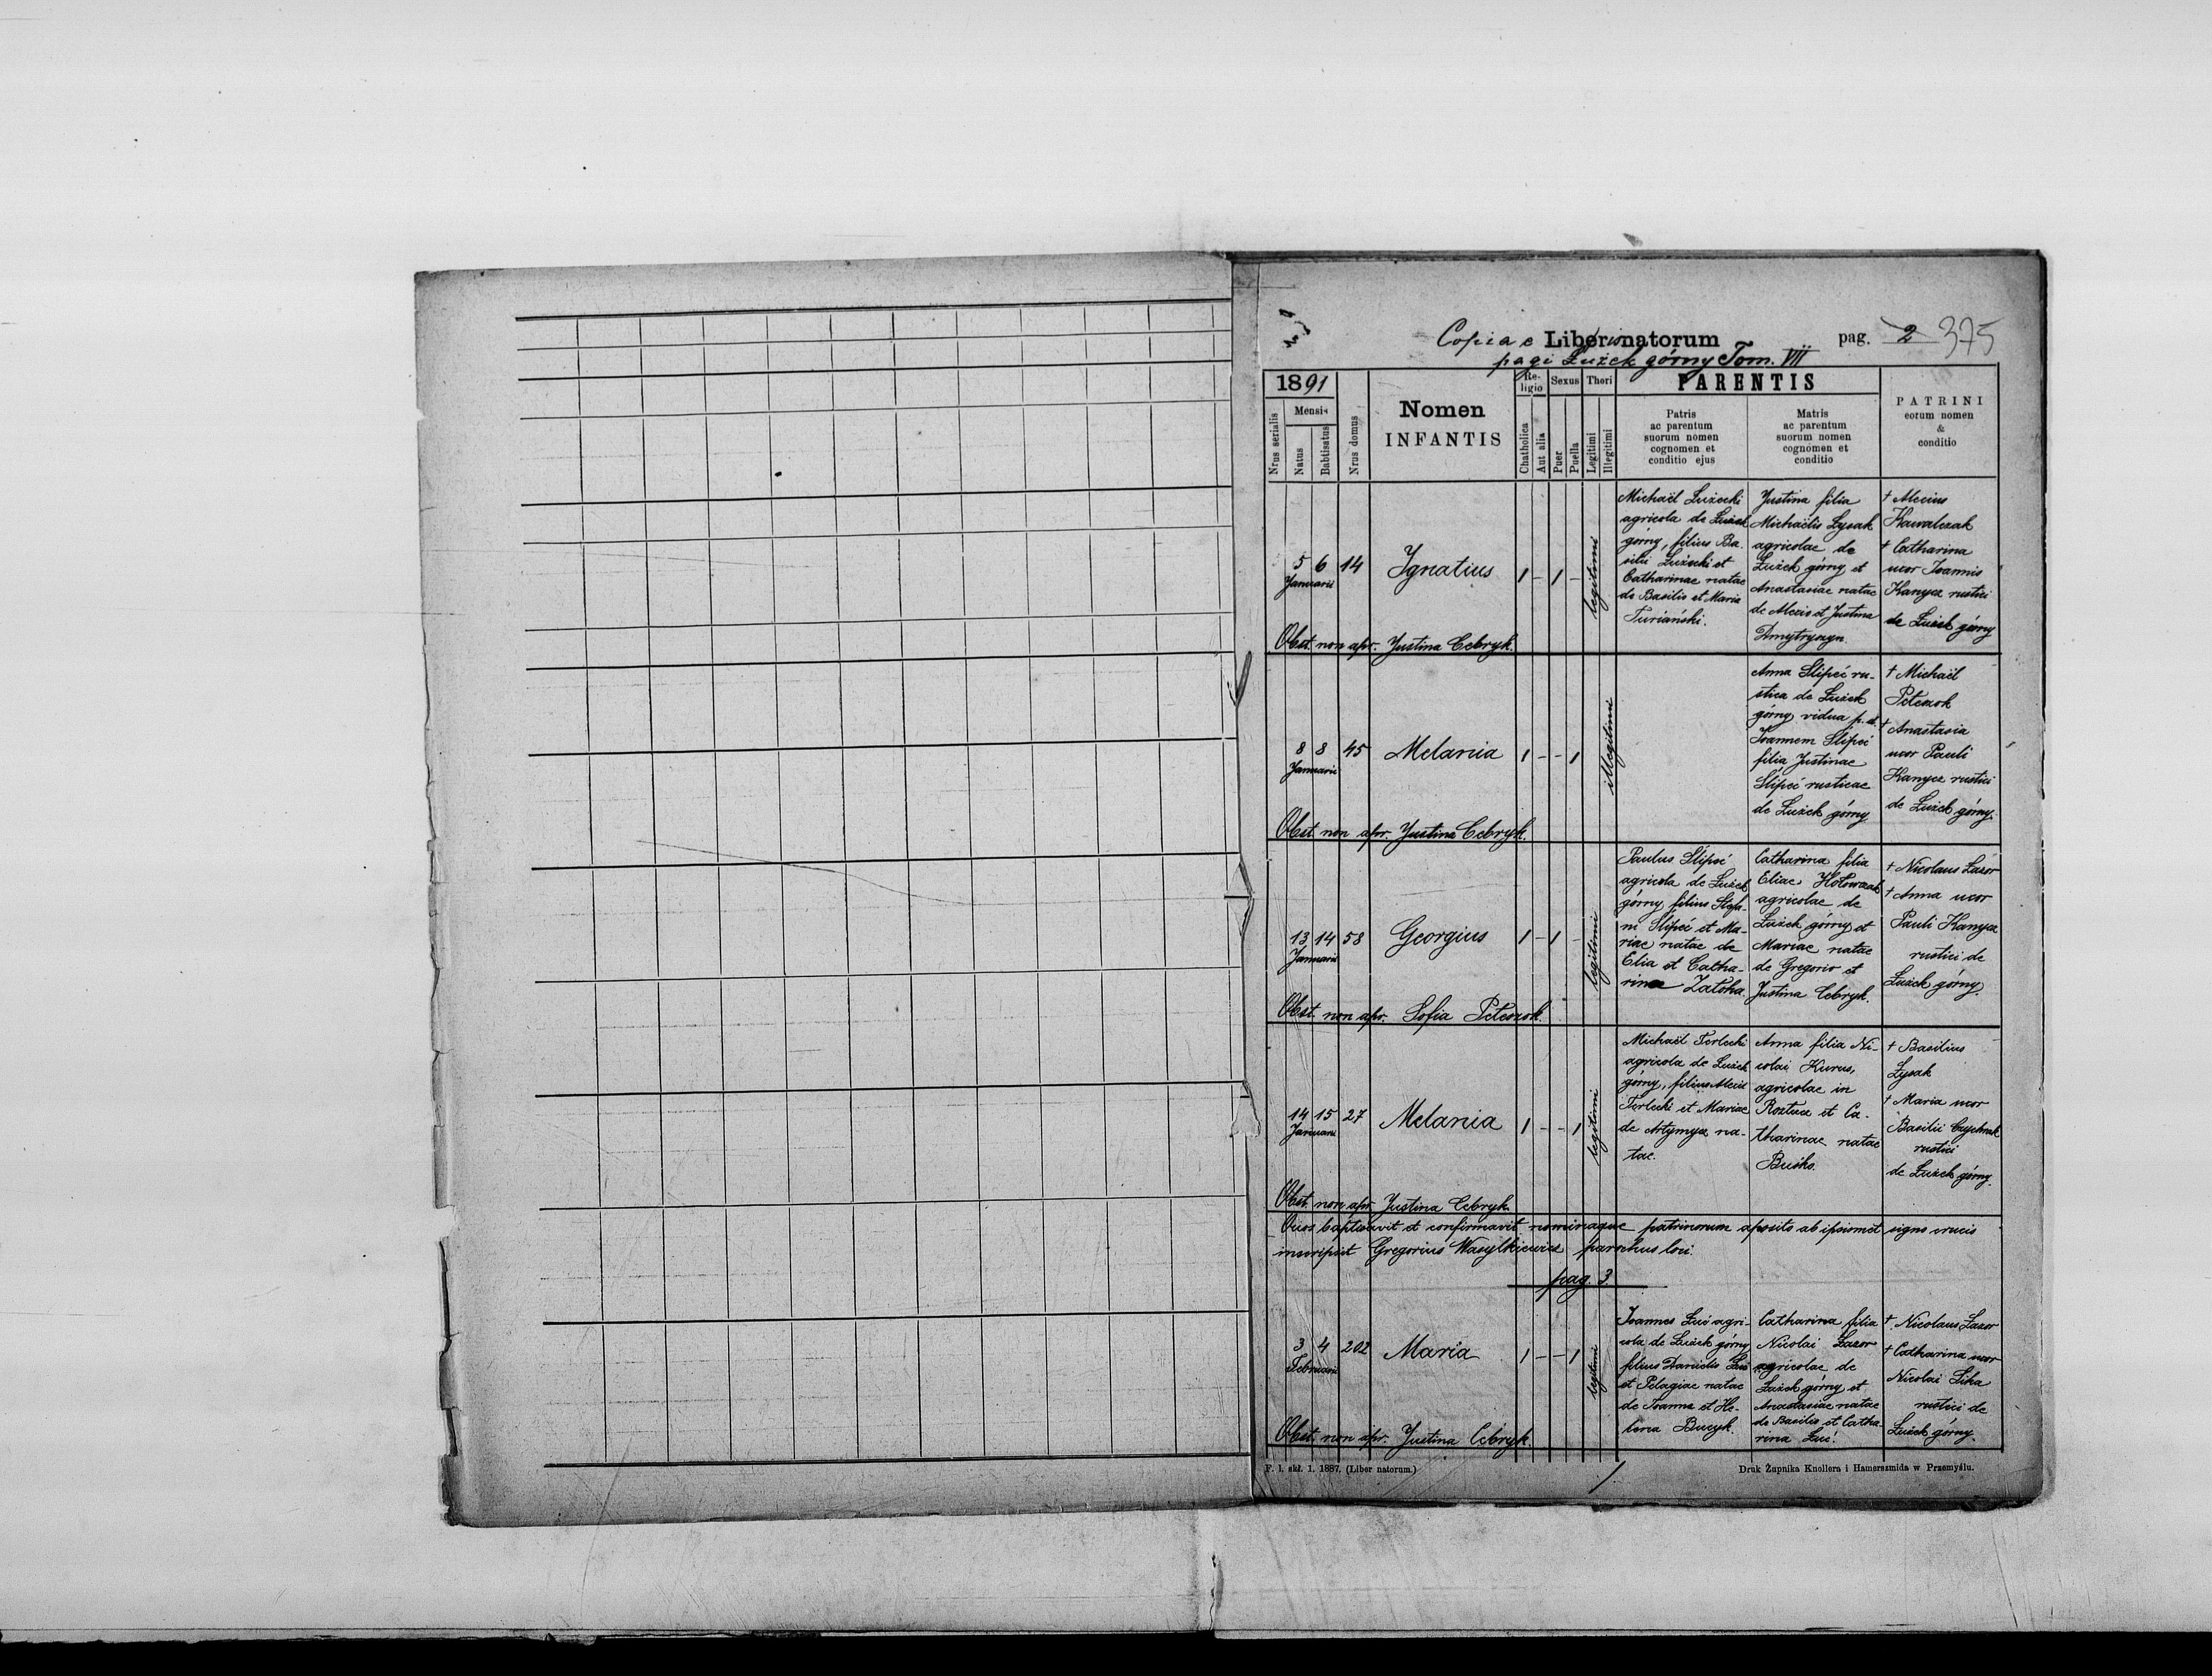 Copia e Libri natorum pag. 2 375
pagi Łużek górny Tom. VII
1891
Nrus serialis
Mensis
Natus
Babtisatus
Nrus domus
Nomen
INFANTIS
Religio
Chatholica
Aut alia
Sexus
Puer
Puella
Thori
Legitimi
Illegitimi
PARENTIS
Patris
ac parentum
suorum nomen
cognomen et
conditio ejus
Matris
ac parentum
suorum nomen
cognomen et
conditio
PATRINI
eorum nomen
&
conditio
5 6 14 Ignatius 1 – 1 – legitimi
Januarii
Michaël Łużecki
agricola de Łużek
górny, filius Ba-
silii Łużecki et
Catharinae natae
de Basilio et Maria
Turiański.
Justina filia
Michaëlis Łysak
agricolae de
Łużek górny et
Anastasiae natae
de Alexio et Justina
Dmytryszyn
† Alexius
Kawalczak
† Catharina
uxor Joannis
Kanycz rustici
de Łużek górny
Obst. non apr. Justina Cebryk.
8 8 45 Melania 1 – – 1 illegitimi
Januarii
Anna Ślipeć ru-
stica de Łużek
górny vidua p. d.
Joannem Ślipeć
filia Justinae
Ślipeć rusticae
de Łużek górny
† Michaël
Peteszok
† Anastasia
uxor Pauli
Kanycz rustici
de Łużek górny.
Obst. non apr. Justina Cebryk.
13 14 58 Georgius 1 – 1 – legitimi
Januarii
Paulus Ślipeć
agricola de Łużek
górny, filius Stefa-
ni Ślipeć et Ma-
riae natae de
Elia et Catha-
rina Zatoka.
Catharina filia
Eliae Hołowczak
agricolae de
Łużek górny et
Mariae natae
de Gregorio et
Justina Cebryk.
† Nicolaus Łazor
† Anna uxor
Pauli Kanycz
rustici de
Łużek górny.
Obst. non apr. Sofia Peteszok.
14 15 27 Melania 1 – – 1 legitimi
Januarii
Michaël Terlecki
agricola de Łużek
górny, filius Alexii
Terlecki et Mariae
de Artymycz na-
tae.
Anna filia Ni-
colai Kurus,
agricolae in
Roztucz et Ca-
tharinae natae
Buśko.
† Basilius
Łysak
† Maria uxor
Basilii
rustici
de Łużek górny.
Obst. non apr. Justina Cebryk
Quos baptisavit et confirmavit nominaque patrinorum aposito ab ipsismet signo crucis
inscripsit Gregorius Wasylkiewicz parochus loci.
pag. 3.
3 4 202 Maria 1 – – 1 legitimi
Februarii
Joannes Łuć agri-
cola de Łużek górny
filius Danielis Łuć
et Pelagiae natae
de Joanne et He-
lena Bucyk.
Catharina filia
Nicolai Łazor
agricolae de
Łużek górny et
Anastasiae natae
de Basilio et Catha-
rina Łuć.
† Nicolaus Łazor
† Catharina uxor
Nicolai Lika
rustici de
Łużek górny.
Obst. non apr. Justina Cebryk.
F. 1. skł. 1. 1887. (Liber natorum.)
1.
Druk Żupnika Knollera i Hamerszmida w Przemyślu.